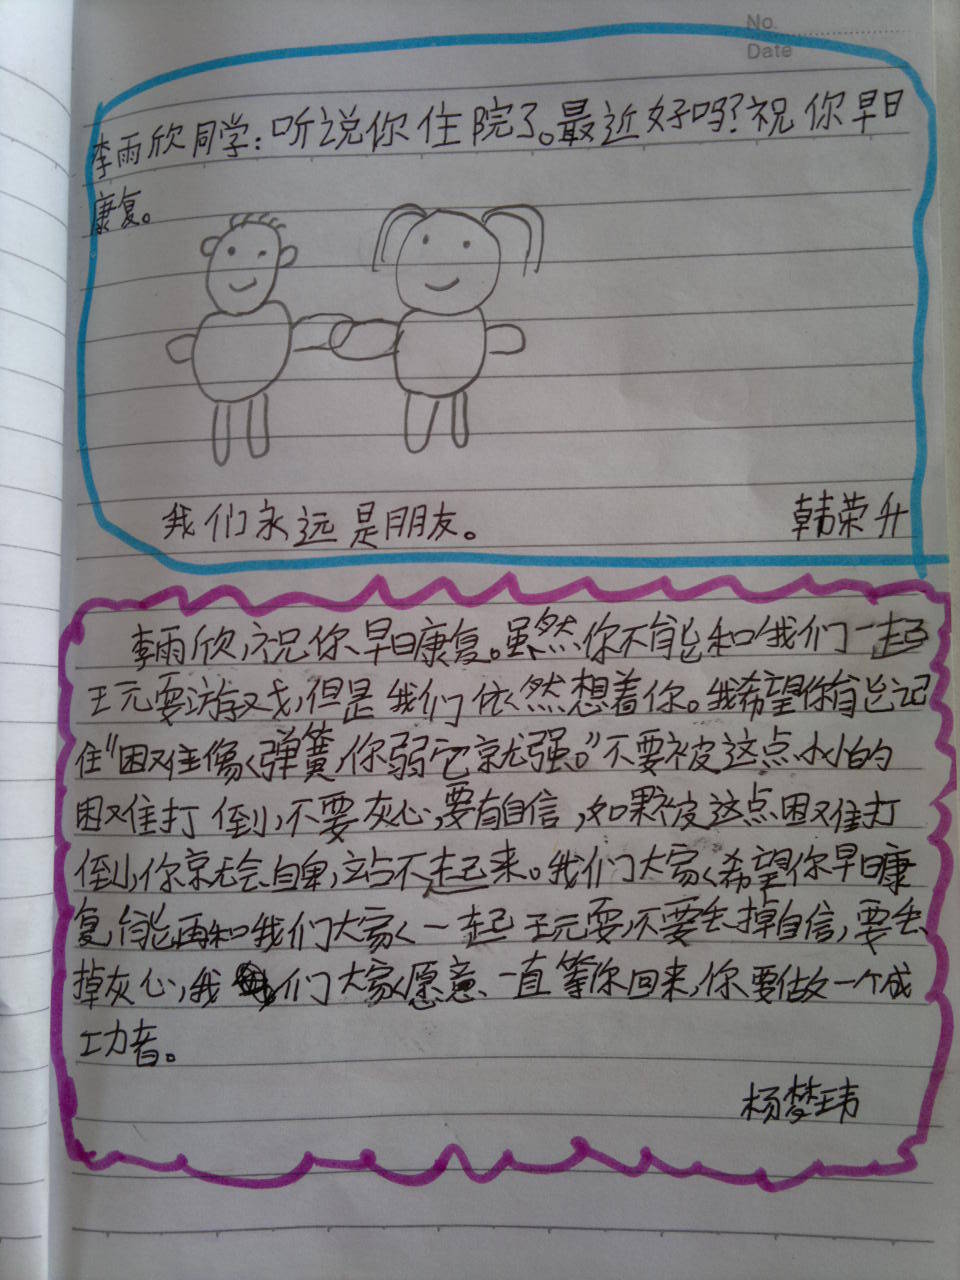 No.
Date
李雨欣同学:听说你住院了。最近好吗?祝你早日
康复。
我们永远是朋友。
韩荣升
李雨欣,祝你早日康复。虽然你不能和我们一起
玩耍游戏,但是我们依然想着你。我希望你能记
住"困难像弹簧,你弱它就强。"不要被这点小小的
困难打倒,不要灰心,要有自信,如果被这点困难打
倒,你就会自卑,站不起来。我们大家希望你早日康
复,能再和我们大家一起玩耍,不要丢掉自信,要丢
掉灰心,我们大家愿意一直等你回来,你要做一个成
功者。
杨梦玮